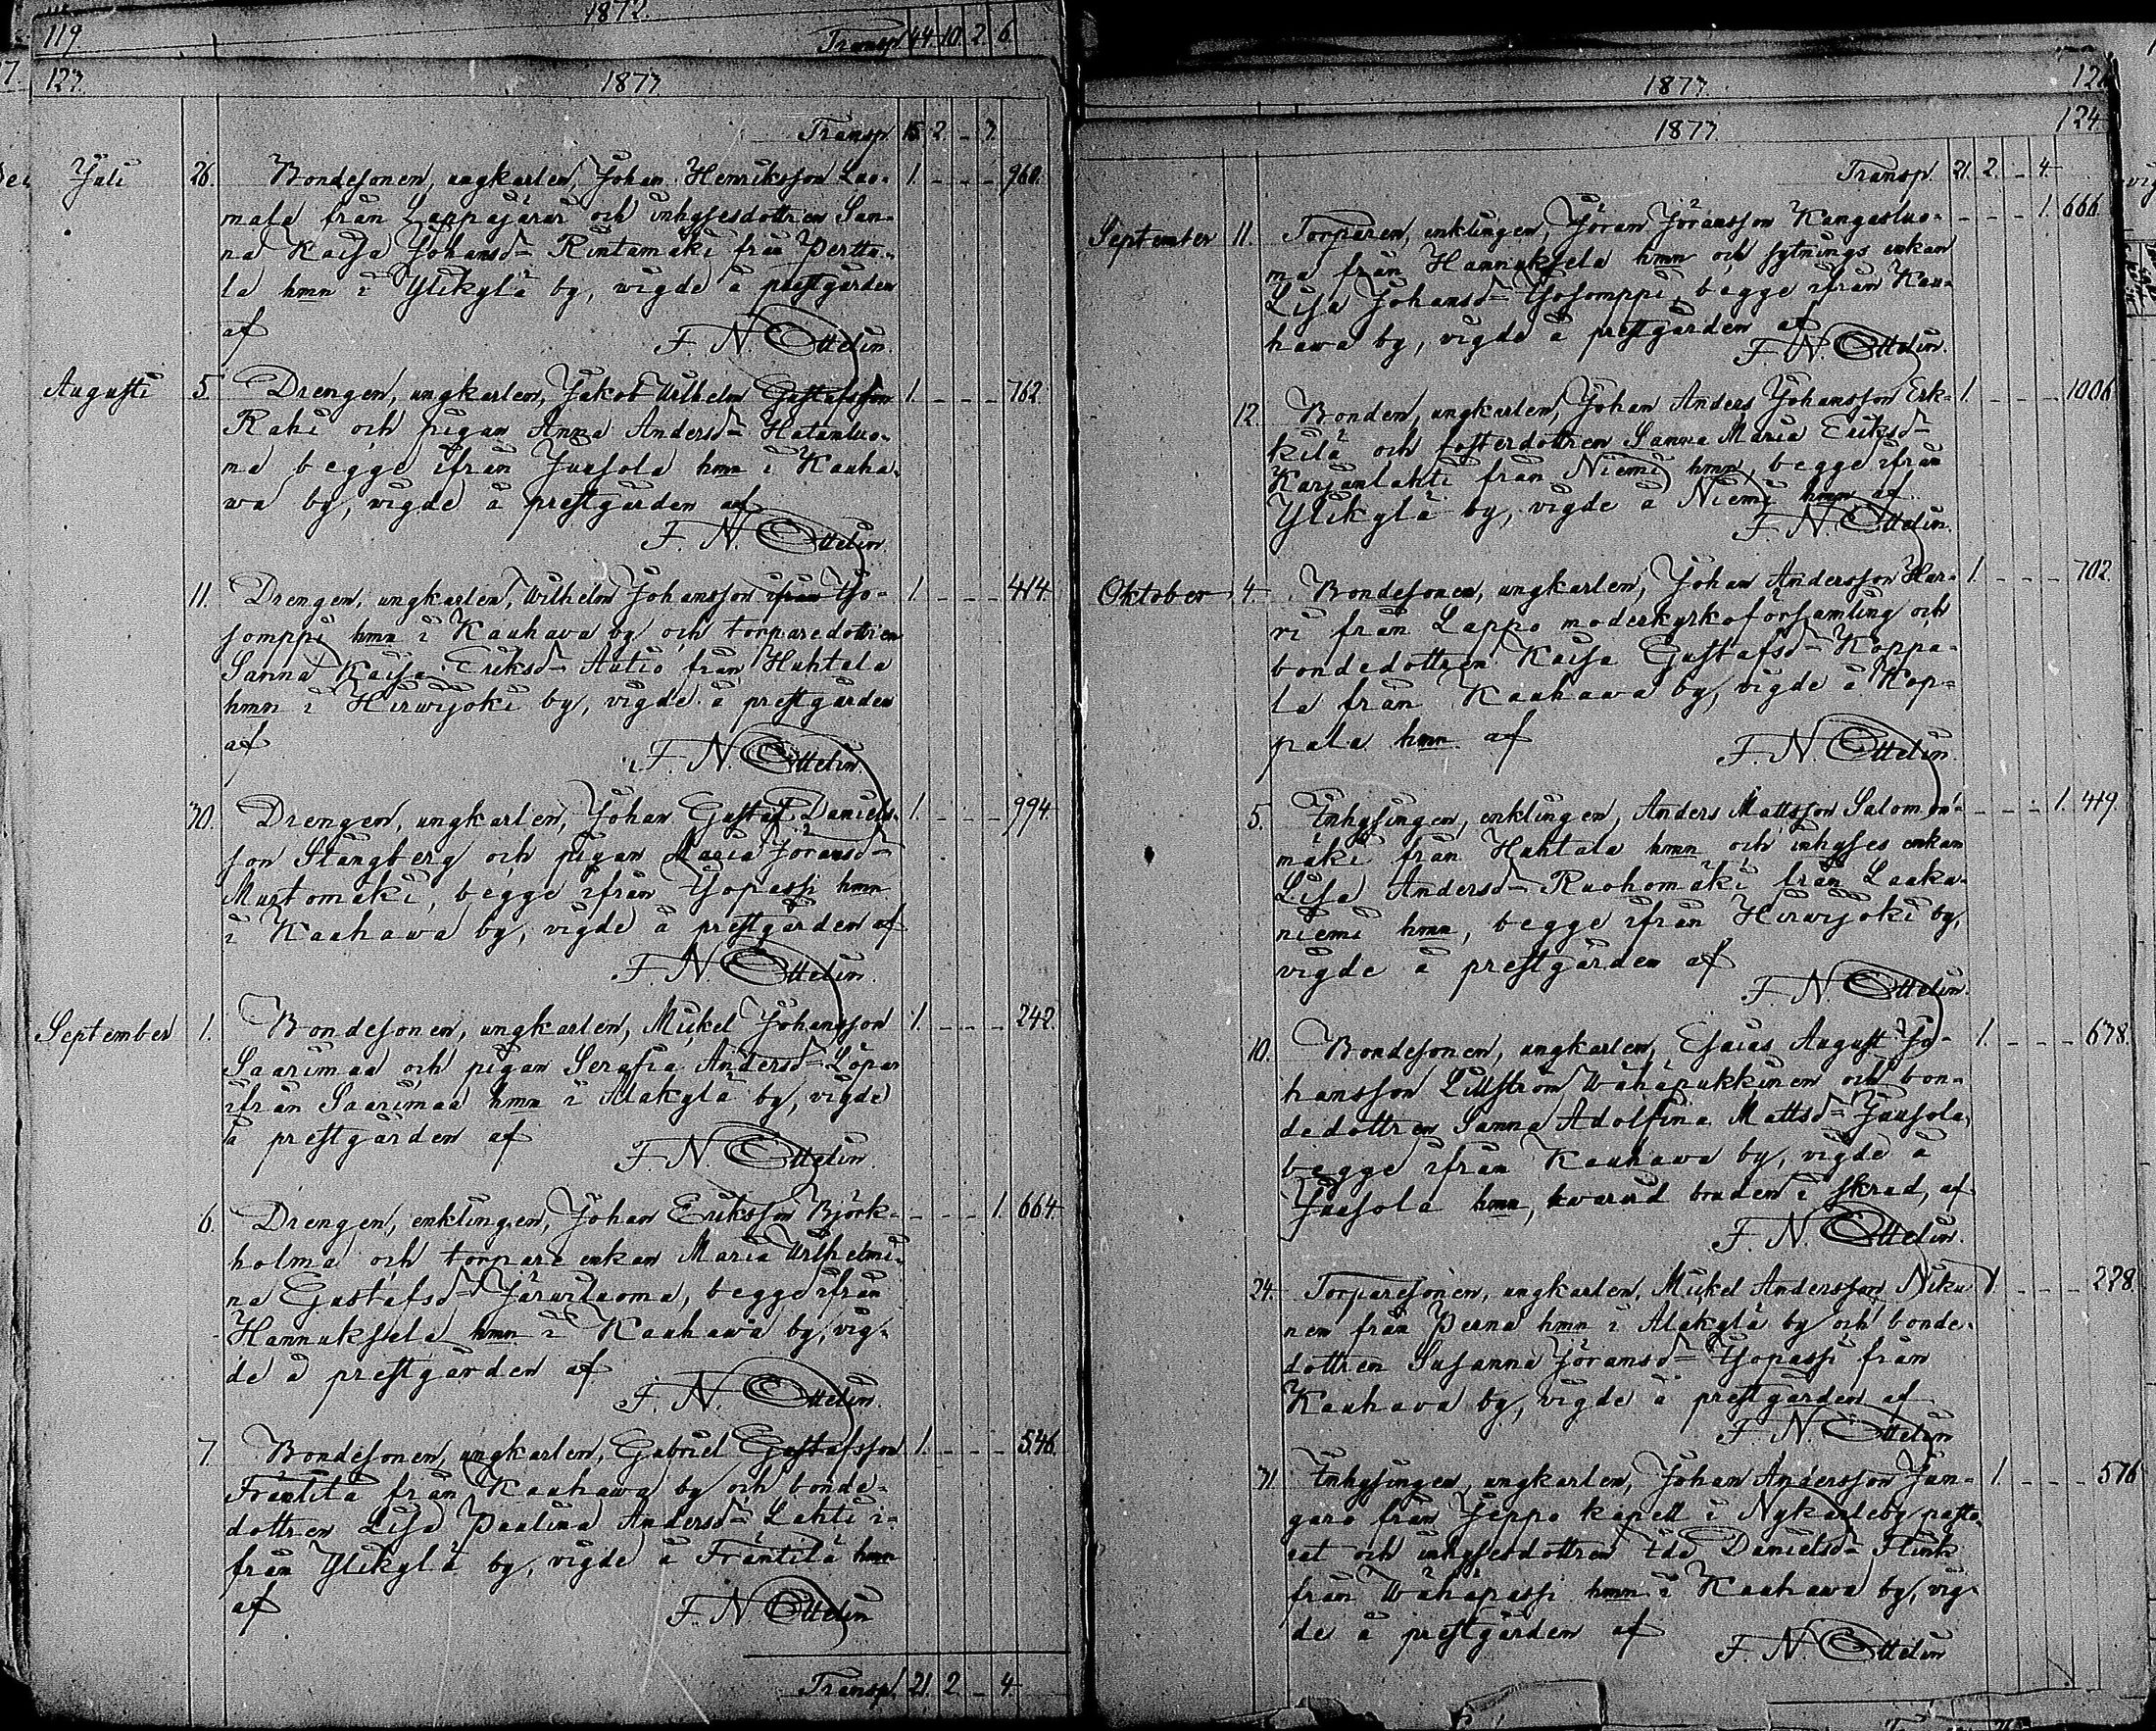 1872.
119 Transp. 44 10 2 6
123. 1873
Transp. 15 2 - 3
Juli 26. Bondesonen, ungkarlen, Johan Henriksson Luo- 1. - - - 960.
mala från Lappajärvi och inhysesdottren San-
na Kaisa Johansd- Rintamäki från Pertta-
la hmn i Ylikylä by, vigde å prestgården
af
F. N. Ottelin.
Augusti 5. Drengen, ungkarlen, Jakob Wilhelm Gustafsson 1. - - - 762.
Rahi och pigan Anna Andersd- Hatanluo-
ma begge ifrån Juusola hmn i Kauha-
wa by, vigde å prestgården af
F. N. Ottelin.
11. Drengen, ungkarlen, Wilhelm Johansson ifrån Iso- 1. - - - 414.
somppi hmn i Kauhava by och torparedottren
Sanna Kaisa Eriksd- Autio från Huhtala
hmn i Hirwijoki by, vigde å prestgården
af
F. N. Ottelin.
30. Drengen, ungkarlen, Johan Gustaf Daniels- 1. - - - 994.
son Stångberg och pigan Maria Jöransd-
Mustomäki, begge ifrån Isopassi hmn
i Kauhawa by, vigde å prestgården af
F. N. Ottelin.
September 1. Bondesonen, ungkarlen, Mikel Johansson 1. - - - 242.
Saarimaa och pigan Serafia Andersd- Löpar
ifrån Saarimaa hmn i Alakylä by, vigde
å prestgården af
F. N. Ottelin.
6. Drengen, enklingen, Johan Eriksson Björk- - - - 1. 664.
holma och torpare enkan Maria Wilhelmi-
na Gustafsd- Järviluoma, begge ifrån
Hannuksela hmn i Kauhawa by, vig-
de å prestgården af
F. N. Ottelin.
7. Bondesonen, ungkarlen, Gabriel Gustafsson 1. - - - 546.
Fräntilä från Kauhawa by och bonde-
dottren Lisa Paulina Andersd- Lahti i-
från Ylikylä by, vigde å Fräntilä hmn
af
F. N. Ottelin
Transp. 21. 2. - 4.
1873.
1873. 124.
Transp. 21. 2. - 4.
September 11. Torparen, enklingen, Jöran Jöransson Kangasluo- - - - 1. 666.
ma från Hannuksela hmn och sytnings enkan
Lisa Johansd- Isosomppi, begge ifrån Kau-
hawa by, vigde å prestgården af
F. N. Ottelin.
12. Bonden, ungkarlen, Johan Anders Johansson Erk- 1. - - - 1006.
kilä och fosterdottren Sanna Maria Eriksd-
Karjanlahti från Niemi hmn, begge ifrån
Ylikylä by, vigde å Niemi hmn af
F. N. Ottelin.
Oktober 4. Bondesonen, ungkarlen, Johan Andersson Har- 1. - - - 702.
ri från Lappo moderkyrkoförsamling och
bondedottren Kaisa Gustafsd- Koppa-
la från Kauhawa by, vigde å Kop-
pala hmn af
F. N. Ottelin.
5. Inhysingen, enklingen, Anders Mattsson Salomon- - - - 1. 419.
mäki från Huhtala hmn och inhyses enkan
Lisa Andersd- Ruohomäki från Laaka-
niemi hmn, begge ifrån Hirwijoki by,
vigde å prestgården af
F. N. Ottelin.
10. Bondesonen, ungkarlen, Esaias August Jo- 1. - - - 678.
hansson Lillström Wähäpukkinen och bon-
dedottren Sanna Adolfina Mattsd- Juusola,
begge ifrån Kauhawa by, vigde å
Juusola hmn, bruden i skrud, af
F. N. Ottelin.
24. Torparesonen, ungkarlen, Mikel Andersson Niku- 1. - - - 228.
nen från Perna hmn i Alakylä by och bonde-
dottren Susanna Jöransd- Isopassi från
Kauhava by, vigde å prestgården af
F. N. Ottelin
31. Inhysingen, ungkarlen, Johan Andersson Jun- 1. - - - 576.
garå från Jeppo kapell i Nykarleby pasto-
rat och inhysesdottren Ida Danielsd- Flink
från Wähäpassi hmn i Kauhawa by, vig-
de å prestgården af
F. N. Ottelin